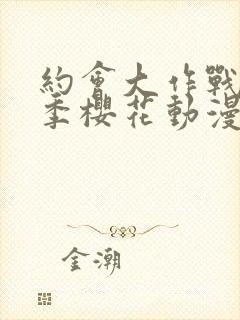 約會大作戰
季櫻花動漫
金潮